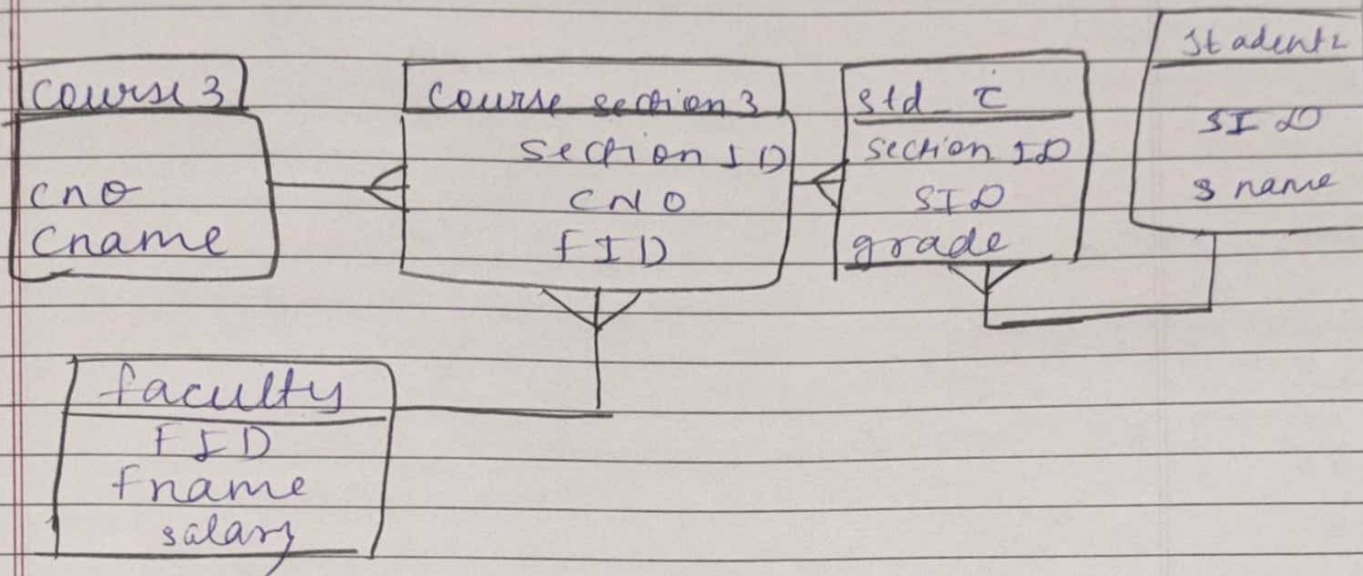 course 3
cno
Cname
Course section 3
section ID
CNO
FID
std_c
section ID
SID
grade
Student2
SID
s name
faculty
FID
Fname
salary